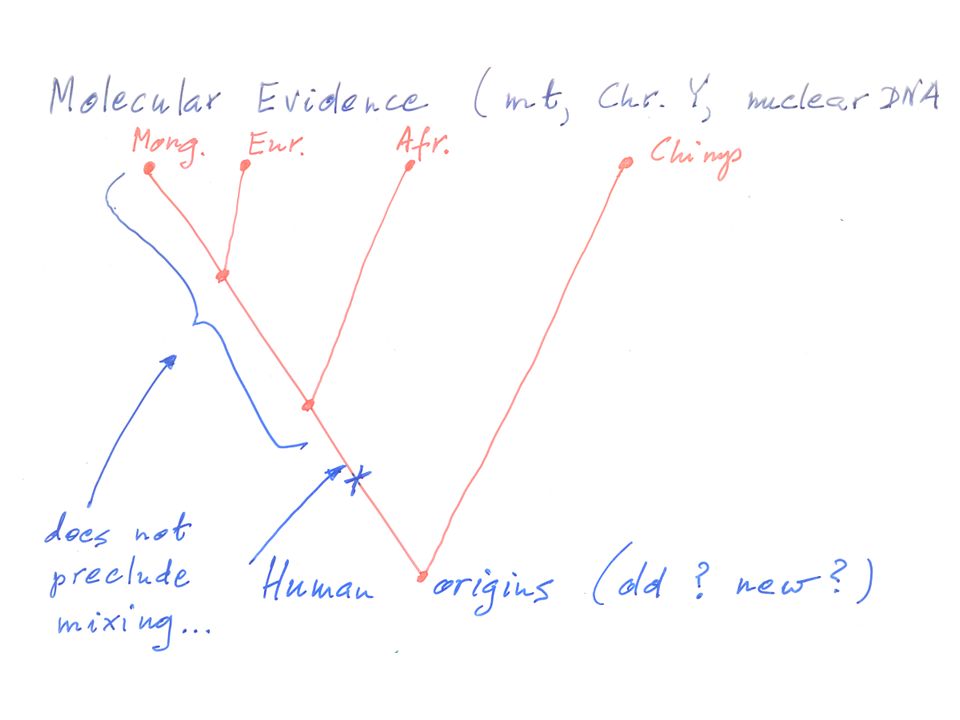 Molecular Evidence (mt, Chr. Y, nuclear DNA
Mong. Eur. Afr. Chimps
does not
preclude
mixing...
Human origins (old ? new ?)